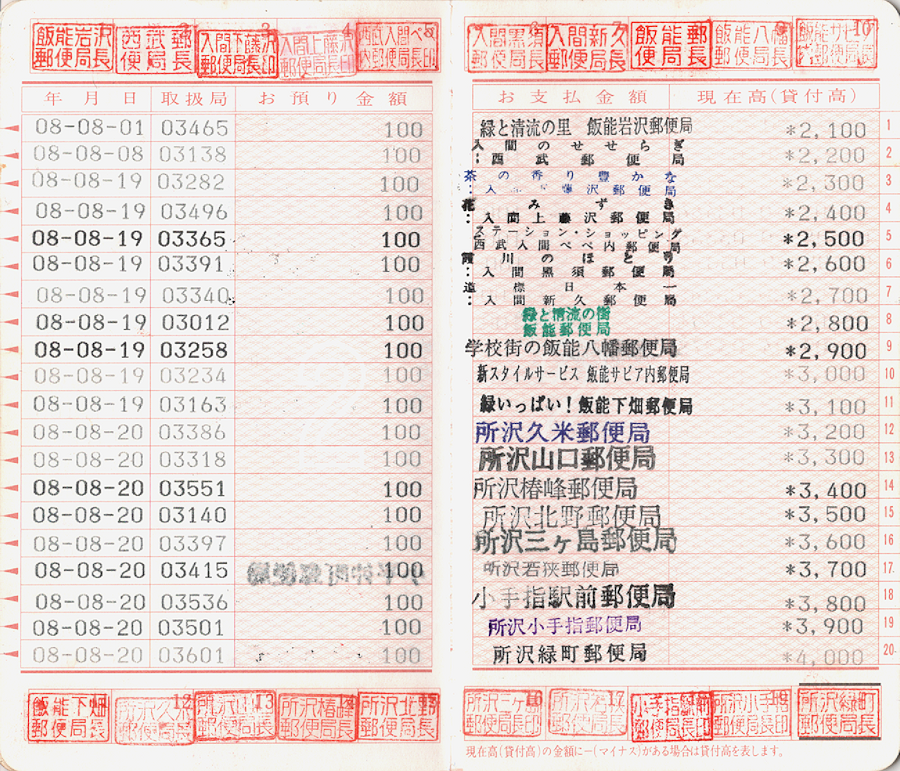 飯能岩沢郵便局長 1
西武郵便局長 2
入間下藤沢郵便局長印 3
入間上藤沢郵便局長印 4
西武入間ペペ内郵便局長印 5
入間黒須郵便局長印 6
入間新久郵便局長印 7
飯能郵便局長 8
飯能八幡郵便局長 9
飯能サビア内郵便局長 10
年月日 取扱局 お預り金額 お支払金額 現在高(貸付高)
08-08-01 03465 100 緑と清流の里 飯能岩沢郵便局 *2,100 1
08-08-08 03138 100 入間のせせらぎ :西武郵便局 *2,200 2
08-08-19 03282 100 茶の香り豊かな :入間下藤沢郵便局 *2,300 3
08-08-19 03496 100 花みずき :入間上藤沢郵便局 *2,400 4
08-08-19 03365 100 ステーション・ショッピング 西武入間ペペ内郵便局 *2,500 5
08-08-19 03391 100 霞川のほとり :入間黒須郵便局 *2,600 6
08-08-19 03340 100 道標日本一 :入間新久郵便局 *2,700 7
08-08-19 03012 100 緑と清流の街 飯能郵便局 *2,800 8
08-08-19 03258 100 学校街の飯能八幡郵便局 *2,900 9
08-08-19 03234 100 新スタイルサービス 飯能サビア内郵便局 *3,000 10
08-08-19 03163 100 緑いっぱい!飯能下畑郵便局 *3,100 11
08-08-20 03386 100 所沢久米郵便局 *3,200 12
08-08-20 03318 100 所沢山口郵便局 *3,300 13
08-08-20 03551 100 所沢椿峰郵便局 *3,400 14
08-08-20 03140 100 所沢北野郵便局 *3,500 15
08-08-20 03397 100 所沢三ヶ島郵便局 *3,600 16
08-08-20 03415 100 所沢若狭郵便局 *3,700 17
08-08-20 03536 100 小手指駅前郵便局 *3,800 18
08-08-20 03501 100 所沢小手指郵便局 *3,900 19
08-08-20 03601 100 所沢緑町郵便局 *4,000 20
飯能下畑郵便局長
所沢久米郵便局長印 12
所沢山口郵便局長 13
所沢椿峰郵便局長 14
所沢北野郵便局長
所沢三ヶ島郵便局長印 16
所沢若狭郵便局長 17
小手指駅前郵便局長印
所沢小手指郵便局長印
所沢緑町郵便局長
現在高(貸付高)の金額に−(マイナス)がある場合は貸付高を表します。